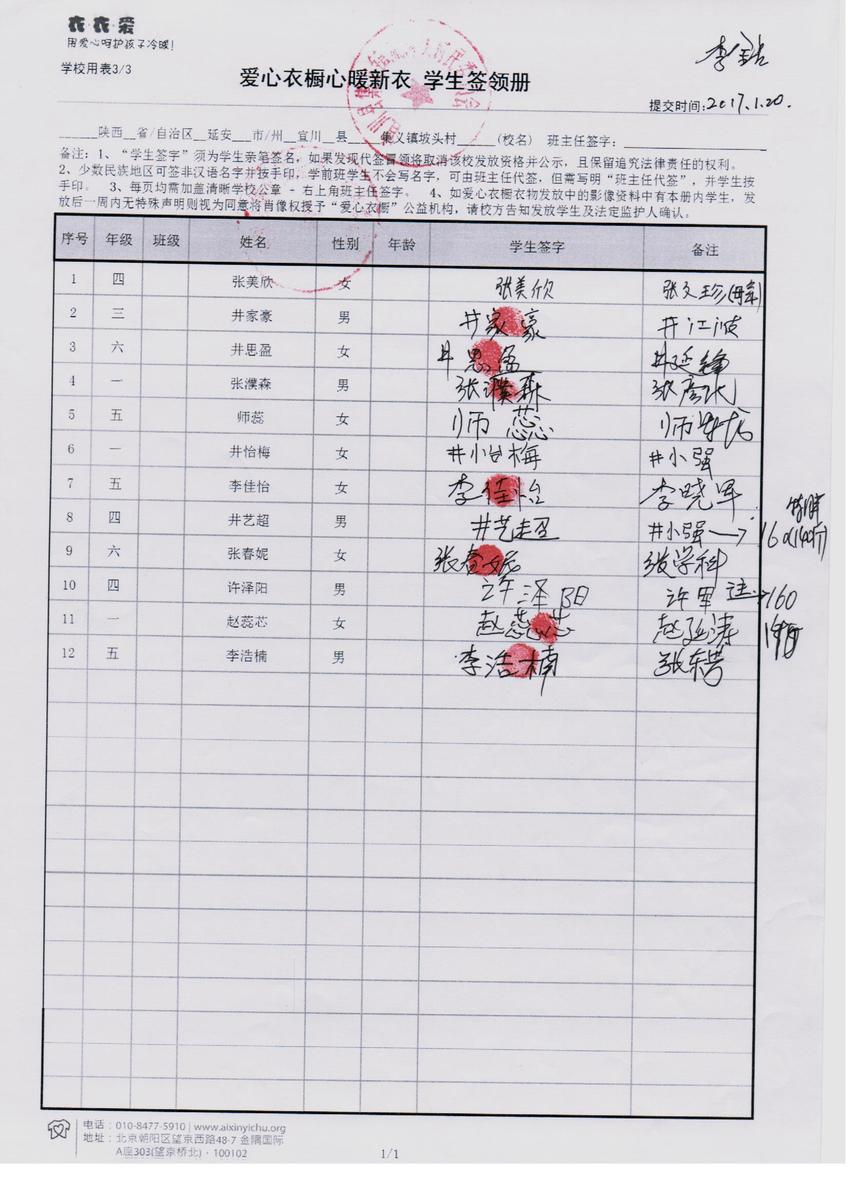 衣·衣·爱
用爱心呵护孩子冷暖!
学校用表3/3
爱心衣橱心暖新衣 学生签领册
提交时间:2017.1.20.
______陕西__省/自治区__延安___市/州__宜川__县____ 集义镇坡头村______(校名) 班主任签字:
备注:1、“学生签字”须为学生亲笔签名,如果发现代签冒领将取消该校发放资格并公示,且保留追究法律责任的权利。
2、少数民族地区可签非汉语名字并按手印,学前班学生不会写名字,可由班主任代签,但需写明“班主任代签”,并学生按
手印。 3、每页均需加盖清晰学校公章 - 右上角班主任签字。 4、如爱心衣橱衣物发放中的影像资料中有本册内学生,发
放后一周内无特殊声明则视为同意将肖像权授予“爱心衣橱”公益机构,请校方告知发放学生及法定监护人确认。
序号 年级 班级 姓名 性别 年龄 学生签字 备注
1 四 张美欣 女 张美欣 张文珍
2 三 井家豪 男 井家豪 井江波
3 六 井思盈 女 井思盈 井延锋
4 一 张濮森 男 张濮森 张彦
5 五 师蕊 女 师蕊 师
6 一 井怡梅 女 井小台梅 井小强
7 五 李佳怡 女 李佳怡 李晓军
8 四 井艺超 男 井艺超 井小强→160(140斤)
9 六 张春妮 女 张春妮 张学科
10 四 许泽阳 男 许泽阳 许军 →160
11 一 赵蕊芯 女 赵蕊芯 赵延涛
12 五 李浩楠 男 李浩楠 张东芳
电话:010-8477-5910 | www.aixinyichu.org
地址:北京朝阳区望京西路48-7 金隅国际
A座303(望京桥北)·100102
1/1